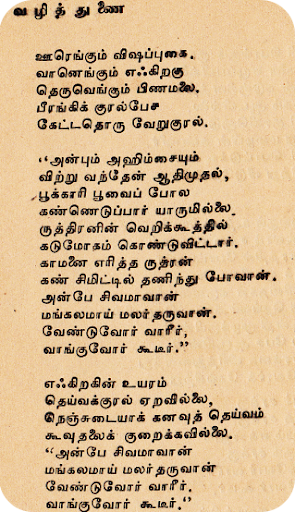 வழித்துணை
ஊரெங்கும் விஷப்புகை.
வானெங்கும் எஃகிறகு
தெருவெங்கும் பிணமலை.
பீரங்கிக் குரல்பேச
கேட்டதொரு வேறுகுரல்.
“அன்பும் அஹிம்சையும்
விற்று வந்தேன் ஆதிமுதல்,
பூக்காரி பூவைப் போல
கண்ணெடுப்பார் யாருமில்லை.
ருத்திரனின் வெறிக்கூத்தில்
கடுமோகம் கொண்டுவிட்டார்.
காமனை எரித்த ருத்ரன்
கண் சிமிட்டில் தணிந்து போவான்.
அன்பே சிவமாவான்
மங்கலமாய் மலர்தருவான்.
வேண்டுவோர் வாரீர்,
வாங்குவோர் கூடீர்.”
எஃகிறகின் உயரம்
தெய்வக்குரல் ஏறவில்லை,
நெஞ்சுடையாக் கனவுத் தெய்வம்
கூவுதலைக் குறைக்கவில்லை.
“அன்பே சிவமாவான்
மங்கலமாய் மலர்தருவான்
வேண்டுவோர் வாரீர்.
வாங்குவோர் கூடீர்.”